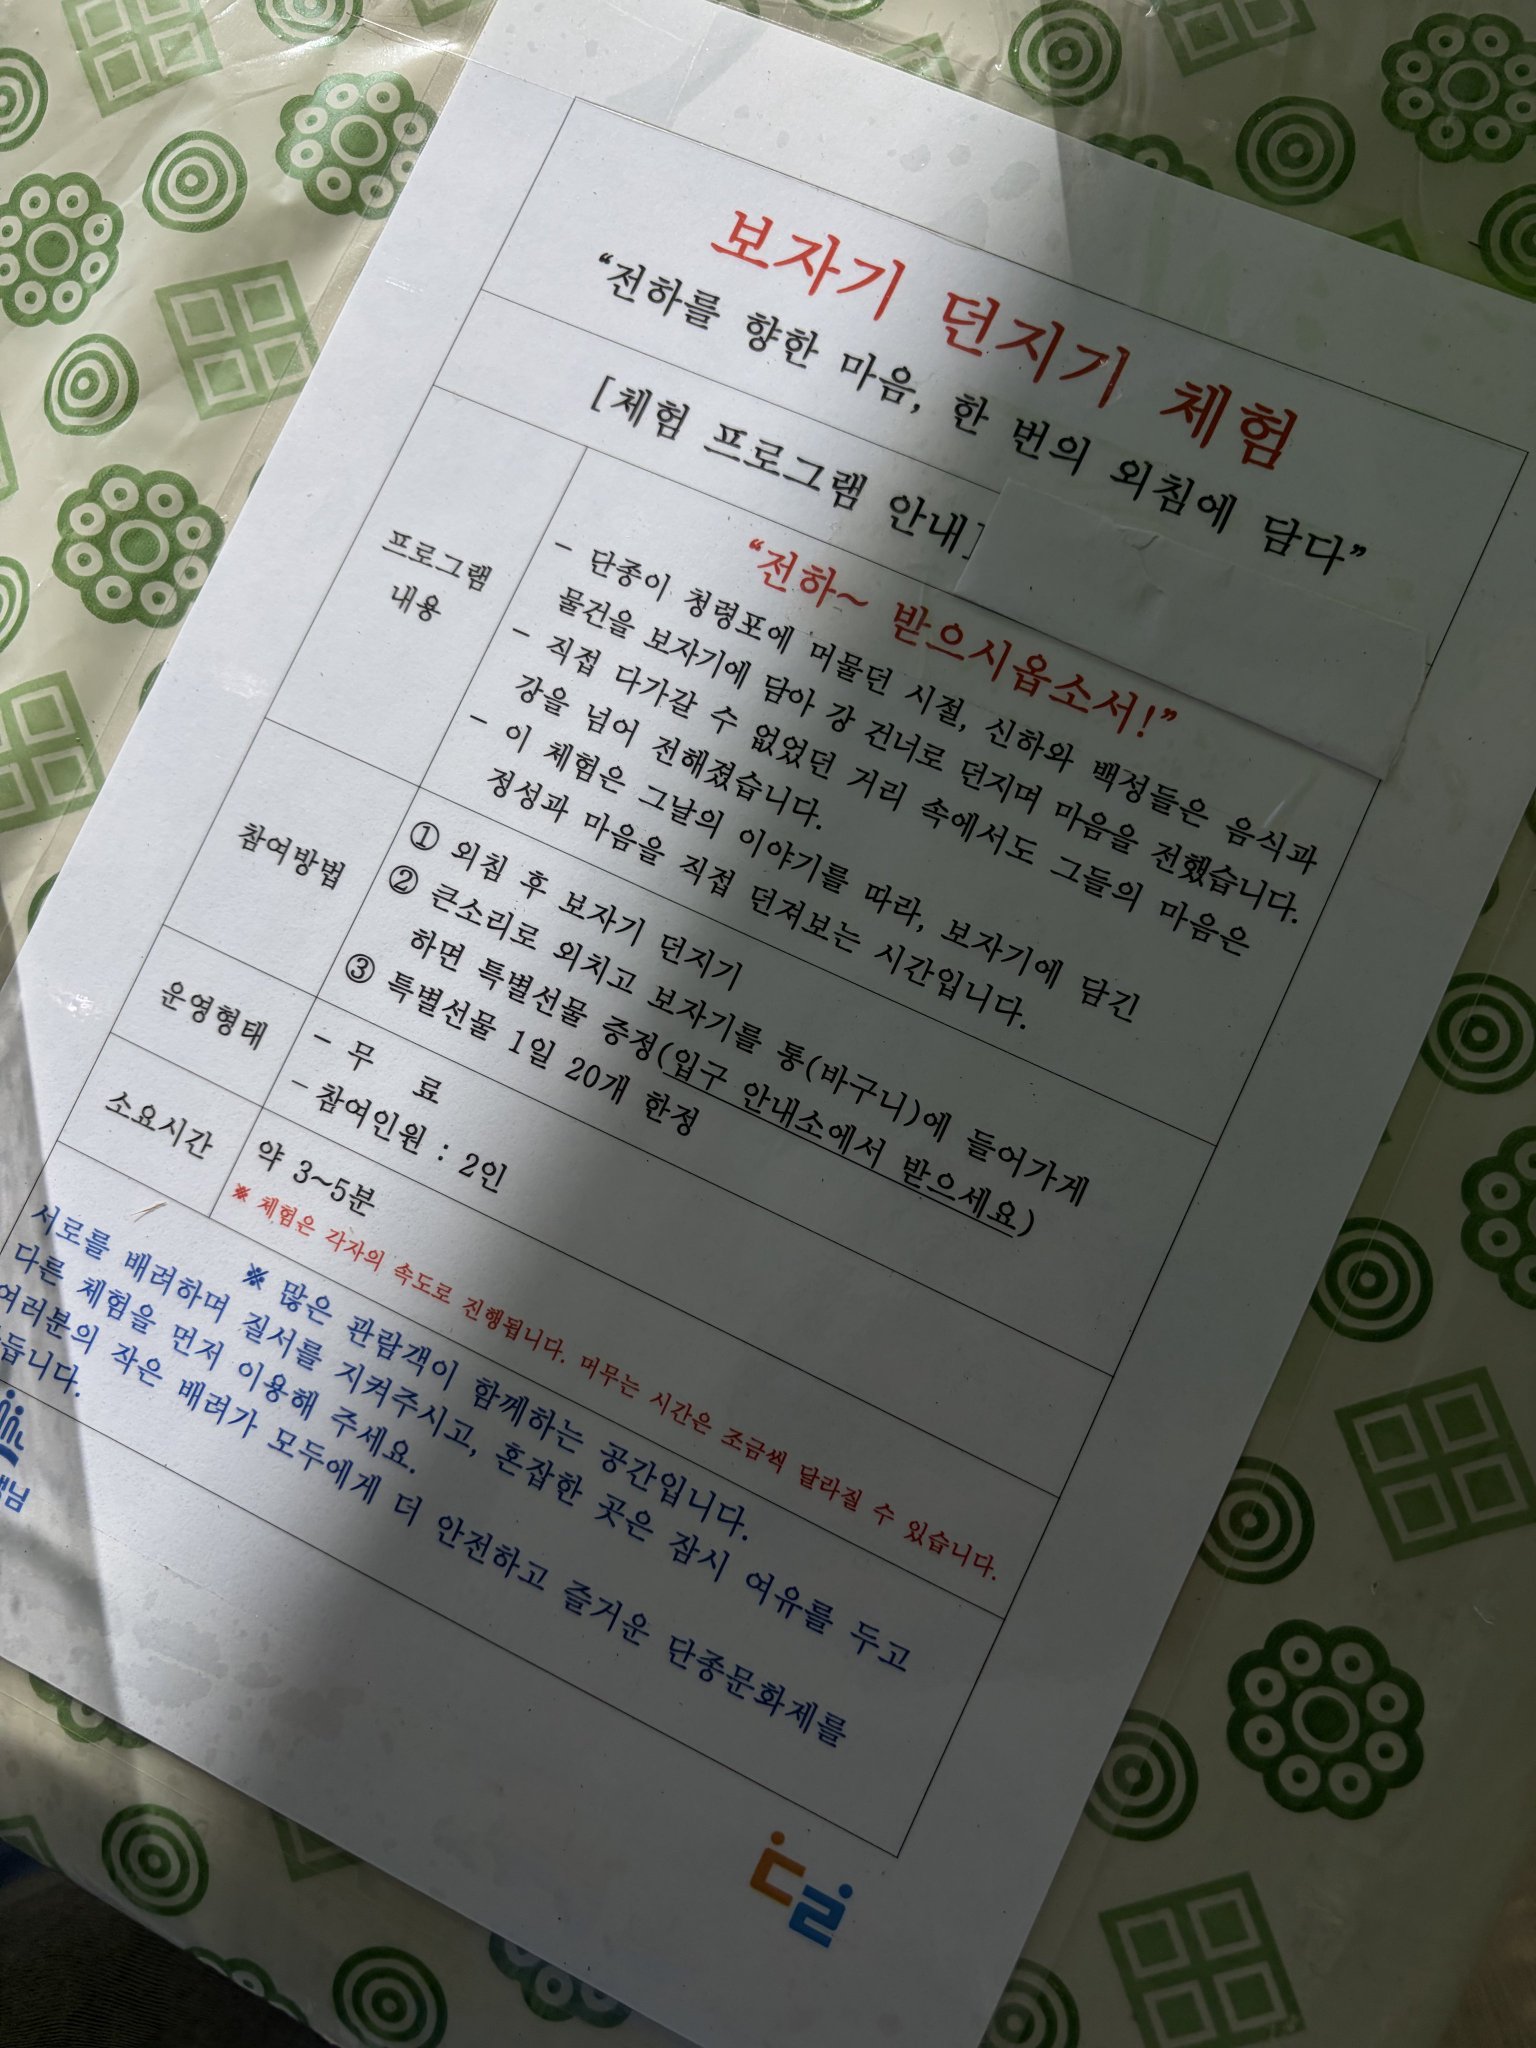 보자기 던지기 체험
“전하를 향한 마음, 한 번의 외침에 담다”
[체험 프로그램 안내]
프로그램
내용
“전하~ 받으시옵소서!”
- 단종이 청령포에 머물던 시절, 신하와 백성들은 음식과
물건을 보자기에 담아 강 건너로 던지며 마음을 전했습니다.
- 직접 다가갈 수 없었던 거리 속에서도 그들의 마음은
강을 넘어 전해졌습니다.
- 이 체험은 그날의 이야기를 따라, 보자기에 담긴
정성과 마음을 직접 던져보는 시간입니다.
참여방법
① 외침 후 보자기 던지기
② 큰소리로 외치고 보자기를 통(바구니)에 들어가게
하면 특별선물 증정(입구 안내소에서 받으세요)
③ 특별선물 1일 20개 한정
운영형태
- 무 료
- 참여인원 : 2인
소요시간
약 3~5분
※ 체험은 각자의 속도로 진행됩니다. 머무는 시간은 조금씩 달라질 수 있습니다.
※ 많은 관람객이 함께하는 공간입니다.
서로를 배려하며 질서를 지켜주시고, 혼잡한 곳은 잠시 여유를 두고
다른 체험을 먼저 이용해 주세요.
여러분의 작은 배려가 모두에게 더 안전하고 즐거운 단종문화제를
듭니다.